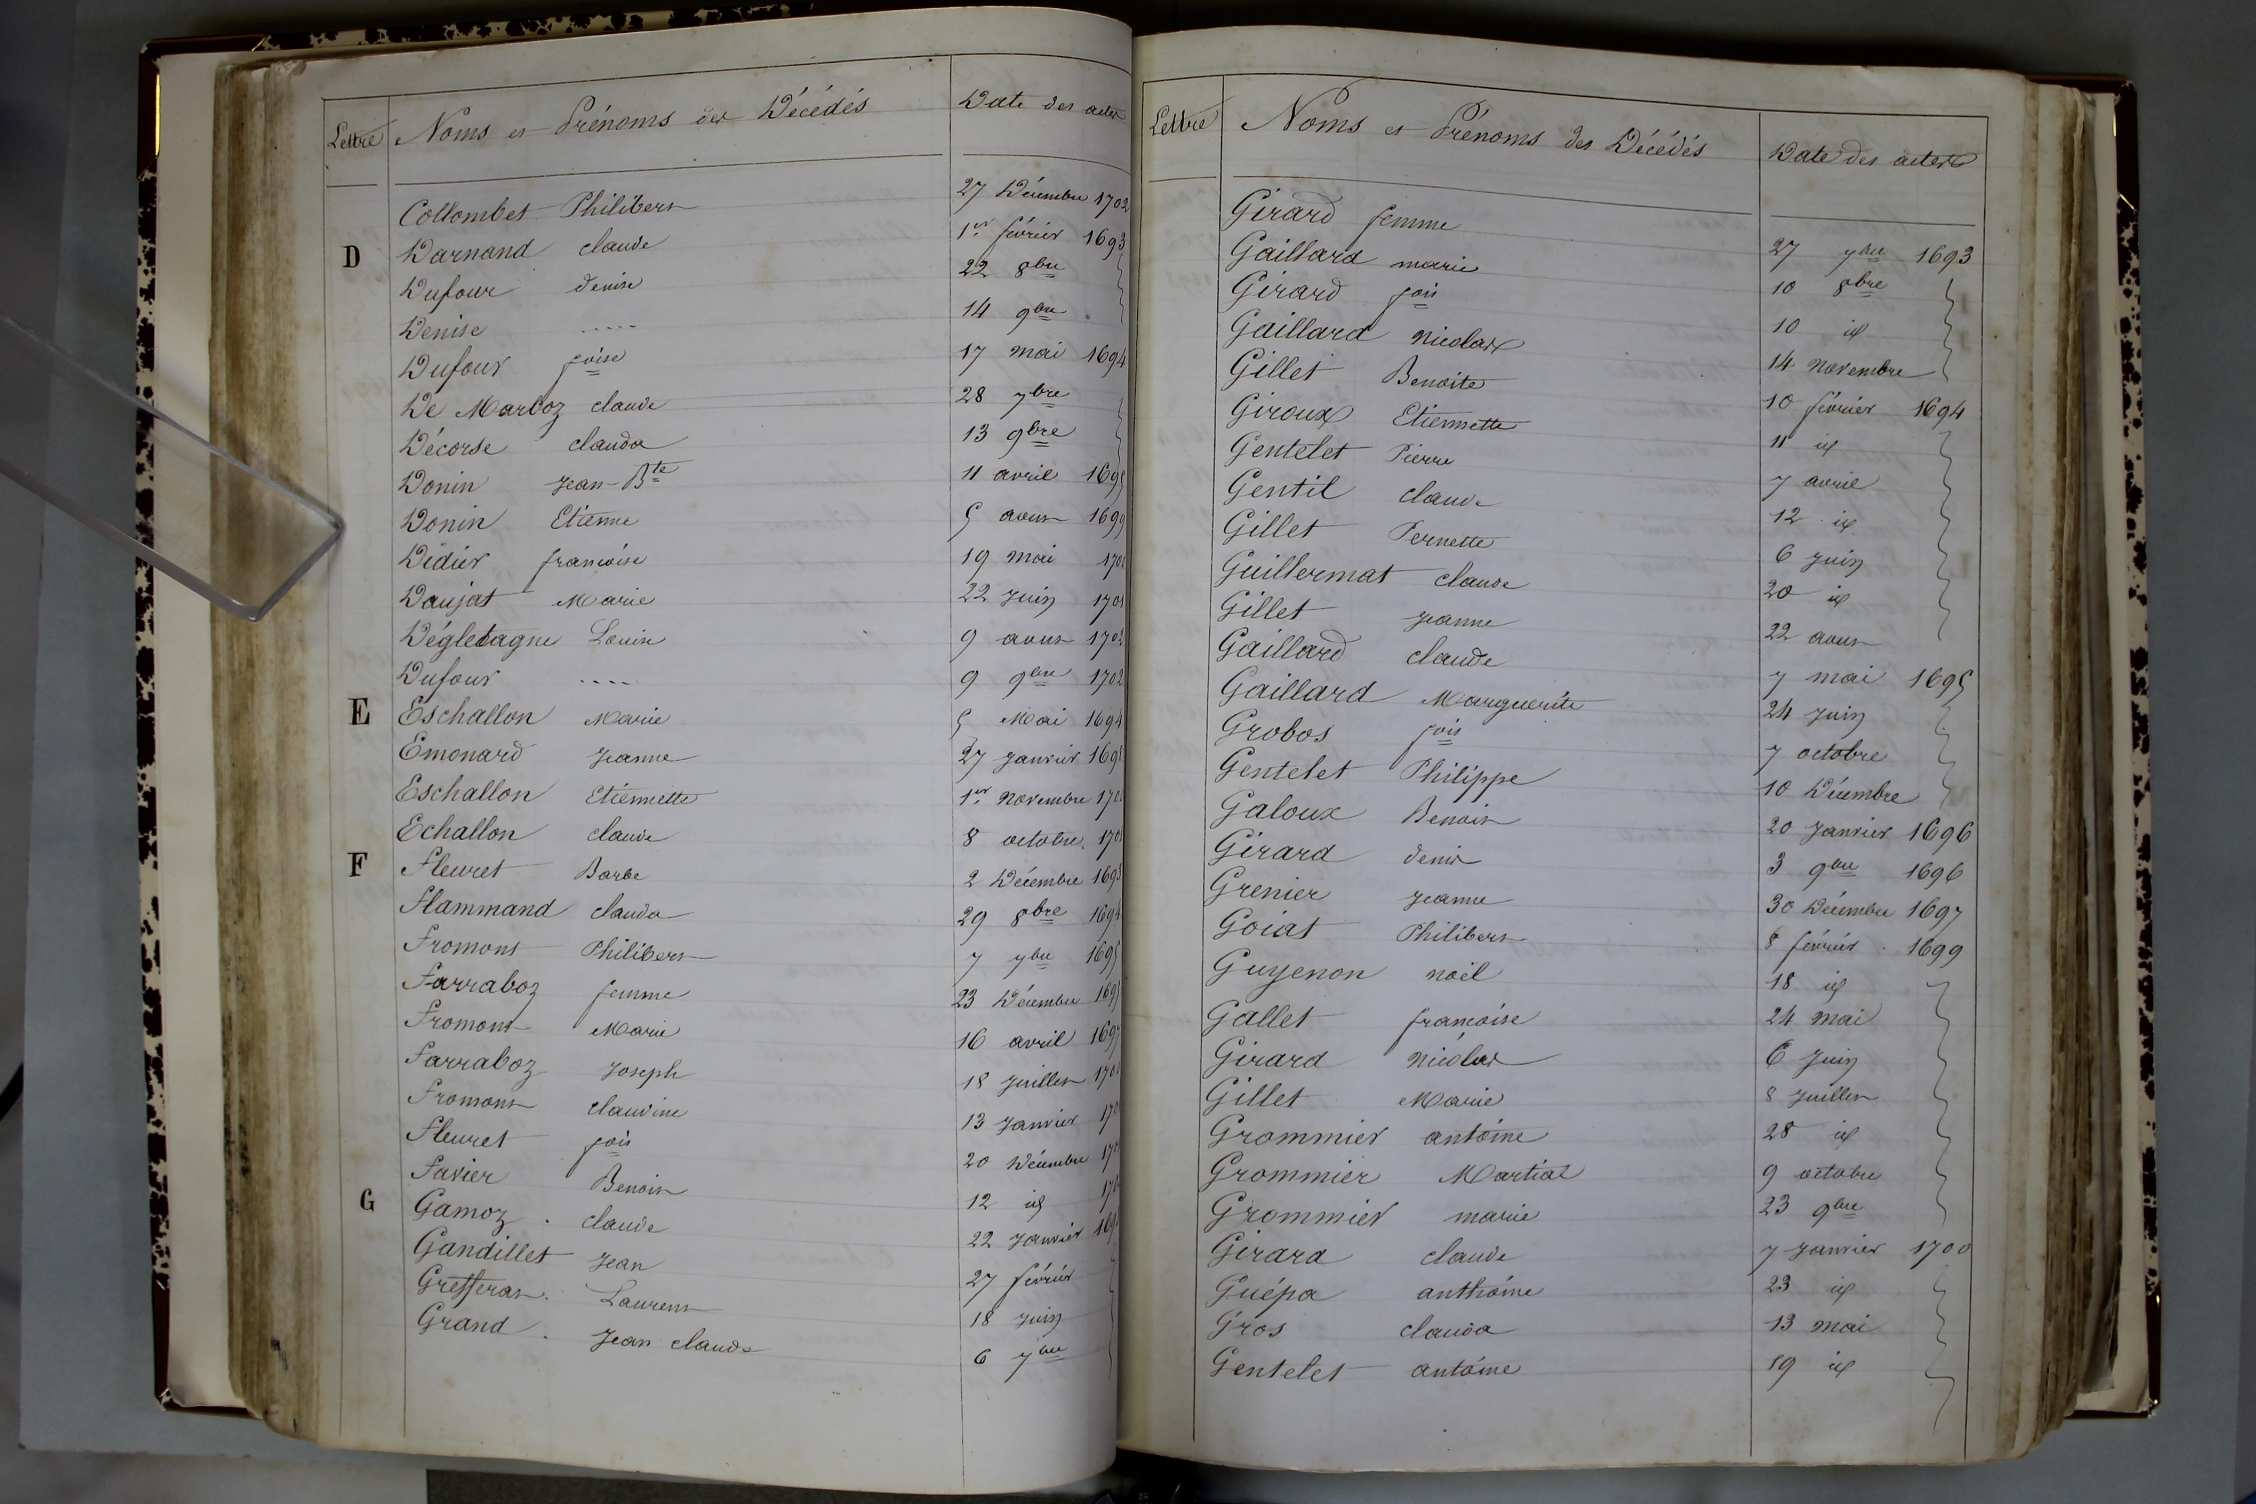 Lettre Noms et Prénoms des Décédés Date des actes
Collombet Philibert 27 Décembre 1702
D Darnand claude 1er février 1693
Dufour denise 22 8bre
Denise ..... 14 9bre
Dufour foise 17 mai 1694
De Marboz claude 28 7bre
Décorse clauda 13 9bre
Donin Jean-Bte 11 avril 1695
Donin Etienne 5 aout 1699
Didier francoise 19 mai
Daujat Marie 22 Juin 1701
Dégletagne Louis 9 aout 1702
Dufour .... 9 9bre 1702
E Eschallon Marie 5 Mai 1694
Emonard Jeanne 27 Janvier
Eschallon Etiennette 1er Novembre
Echallon claude 8 octobre
F Fleuret Barbe 2 Décembre 1693
Flammand clauda 29 8bre 1694
Fromont Philibert 7 7bre 1695
Farraboz femme 23 Décembre 1695
Fromont Marie 16 avril 1697
Farraboz Joseph 18 Juillet
Fromont claudine 13 Janvier
Fleuret fois 20 Décembre
Favier Benoit 12 id
G Gamoz . claude 22 Janvier
Gandillet Jean 27 février
Grefferat . Laurent 18 Juin
Grand . Jean claude 6 7bre
Lettre Noms et Prénoms des Décédés Date des actes
Girard femme 27 7bre 1693
Gaillard marie 10 8bre
Girard fois 10 id
Gaillard Nicolas 14 Novembre
Gillet Benoite 10 février 1694
Giroux Etiennette 11 id
Gentelet Pierre 7 avril
Gentil claude 12 id
Gillet Pernette 6 Juin
Guillermat claude 20 id
Gillet Jeanne 22 aout
Gaillard claude 7 mai 1695
Gaillard Marguerite 24 Juin
Grobos fois 7 octobre
Gentelet Philippe 10 Décembre
Galoux Benoit 20 Janvier 1696
Girard denis 3 9bre 1696
Grenier Jeanne 30 Décembre 1697
Goiat Philibert 8 février 1699
Guyenon noël 18 id
Gallet francoise 24 mai
Girard Nicolas 6 Juin
Gillet Marie 8 Juillet
Grommier antoine 28 id
Grommier Martial 9 octobre
Grommier marie 23 9bre
Girard claude 7 Janvier 1700
Guépa anthoine 23 id
Gros clauda 13 mai
Gentelet antoine 19 id